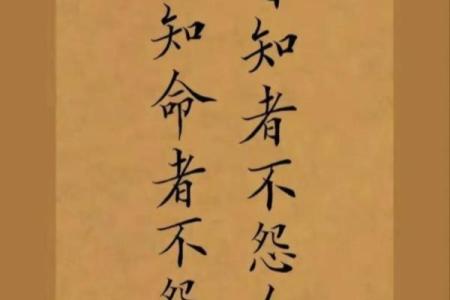 知者不怨人
知命者不怨